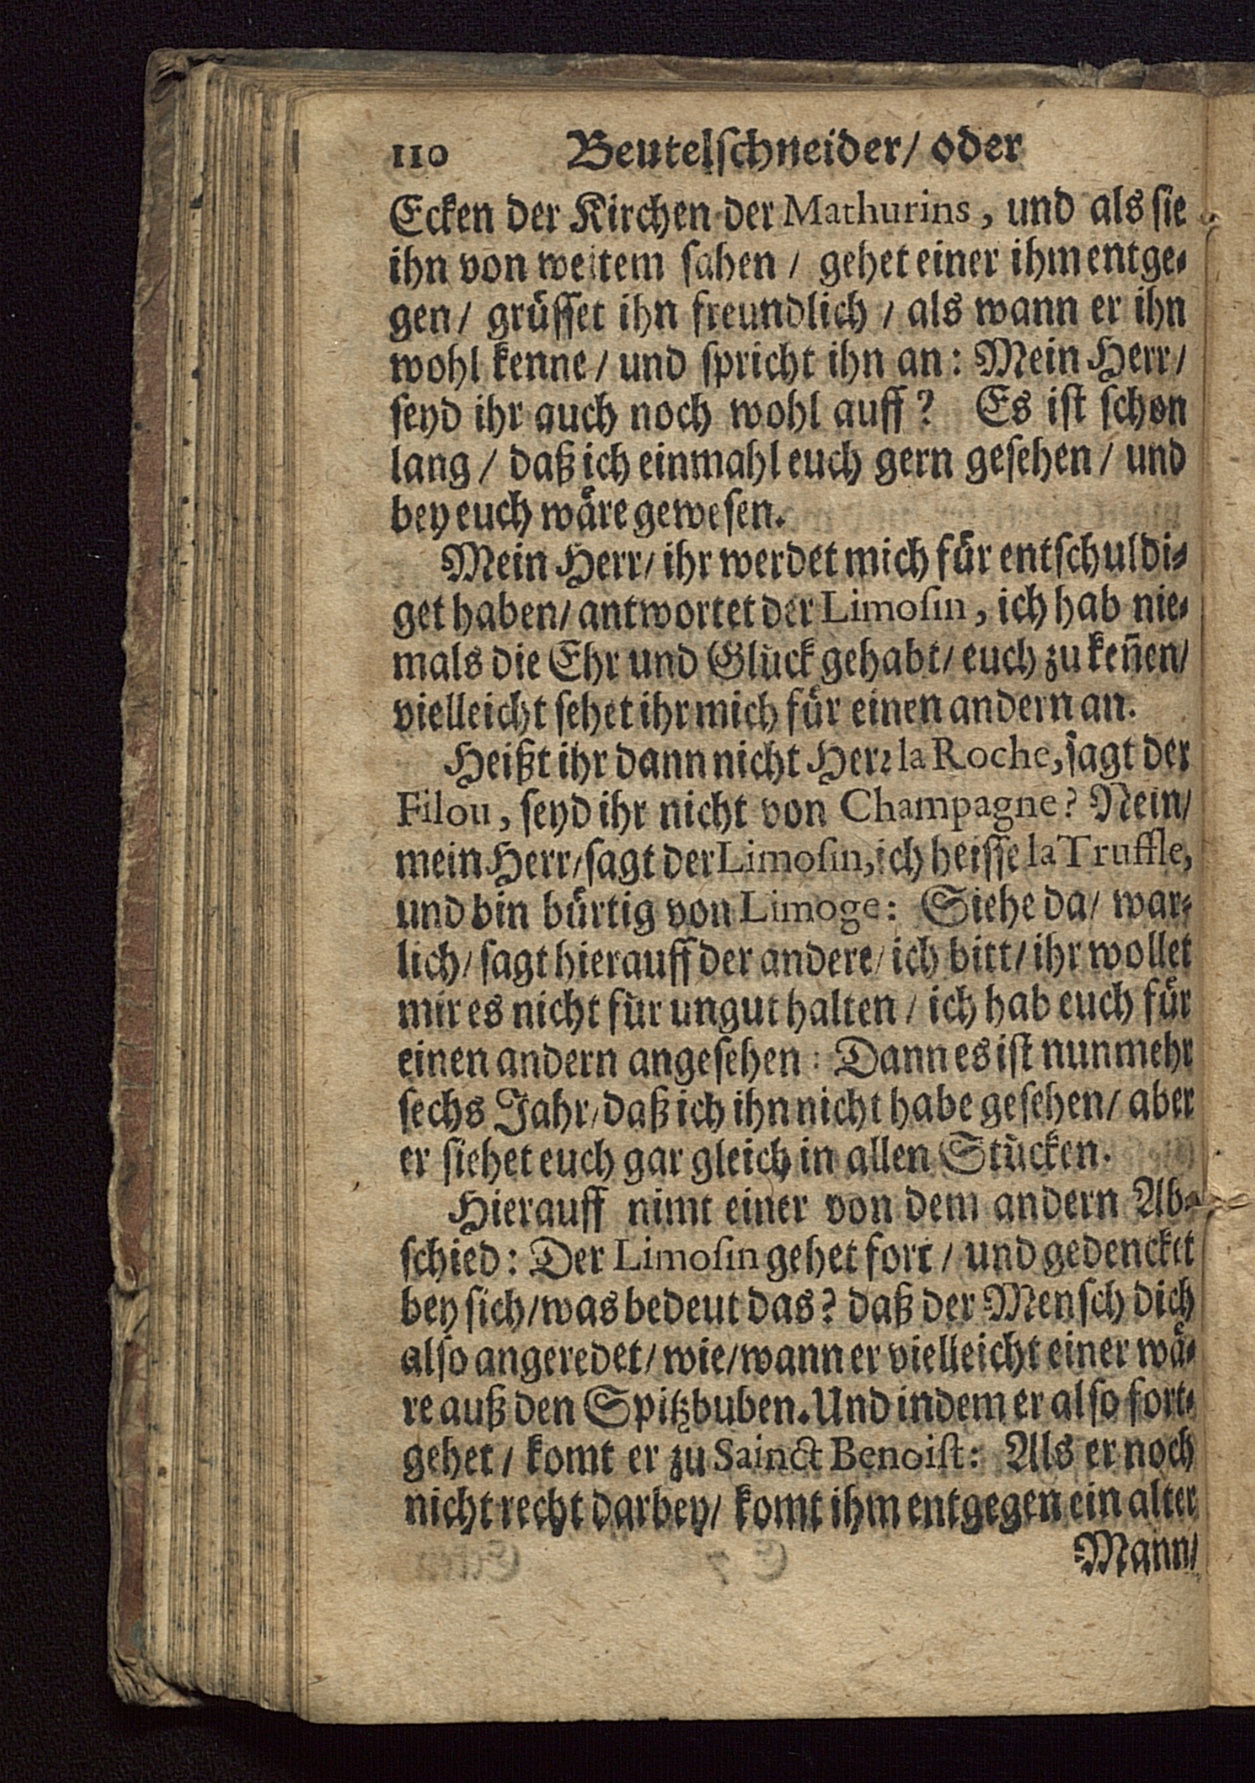 110 Beutelschneider/ oder
Ecken der Kirchen der Mathurins, und als sie
ihn von weitem sahen / gehet einer ihm entge-
gen/ grüsset ihn freundlich / als wann er ihn
wohl kenne / und spricht ihn an: Mein Herr/
seyd ihr auch noch wohl auff? Es ist schon
lang / daß ich einmahl euch gern gesehen / und
bey euch wäre gewesen.
Mein Herr/ ihr werdet mich für entschuldi-
get haben/ antwortet der Limosin, ich hab nie-
mals die Ehr und Glück gehabt/ euch zu keñen/
vielleicht sehet ihr mich für einen andern an.
Heißt ihr dann nicht Herr la Roche, sagt der
Filou, seyd ihr nicht von Champagne? Nein/
mein Herr/ sagt der Limosin, ich heisse la Truffle,
und bin bürtig von Limoge: Siehe da/ war-
lich/ sagt hierauff der andere/ ich bitt/ ihr wollet
mir es nicht für ungut halten / ich hab euch für
einen andern angesehen: Dann es ist nunmehr
sechs Jahr/ daß ich ihn nicht habe gesehen/ aber
er siehet euch gar gleich in allen Stücken.
Hierauff nimt einer von dem andern Ab-
schied: Der Limosin gehet fort / und gedencket
bey sich/ was bedeut das? daß der Mensch dich
also angeredet/ wie/ wann er vielleicht einer wä-
re auß den Spitzbuben. Und indem er also fort-
gehet / komt er zu Sainct Benoist: Als er noch
nicht recht darbey/ komt ihm entgegen ein alter
Mann/